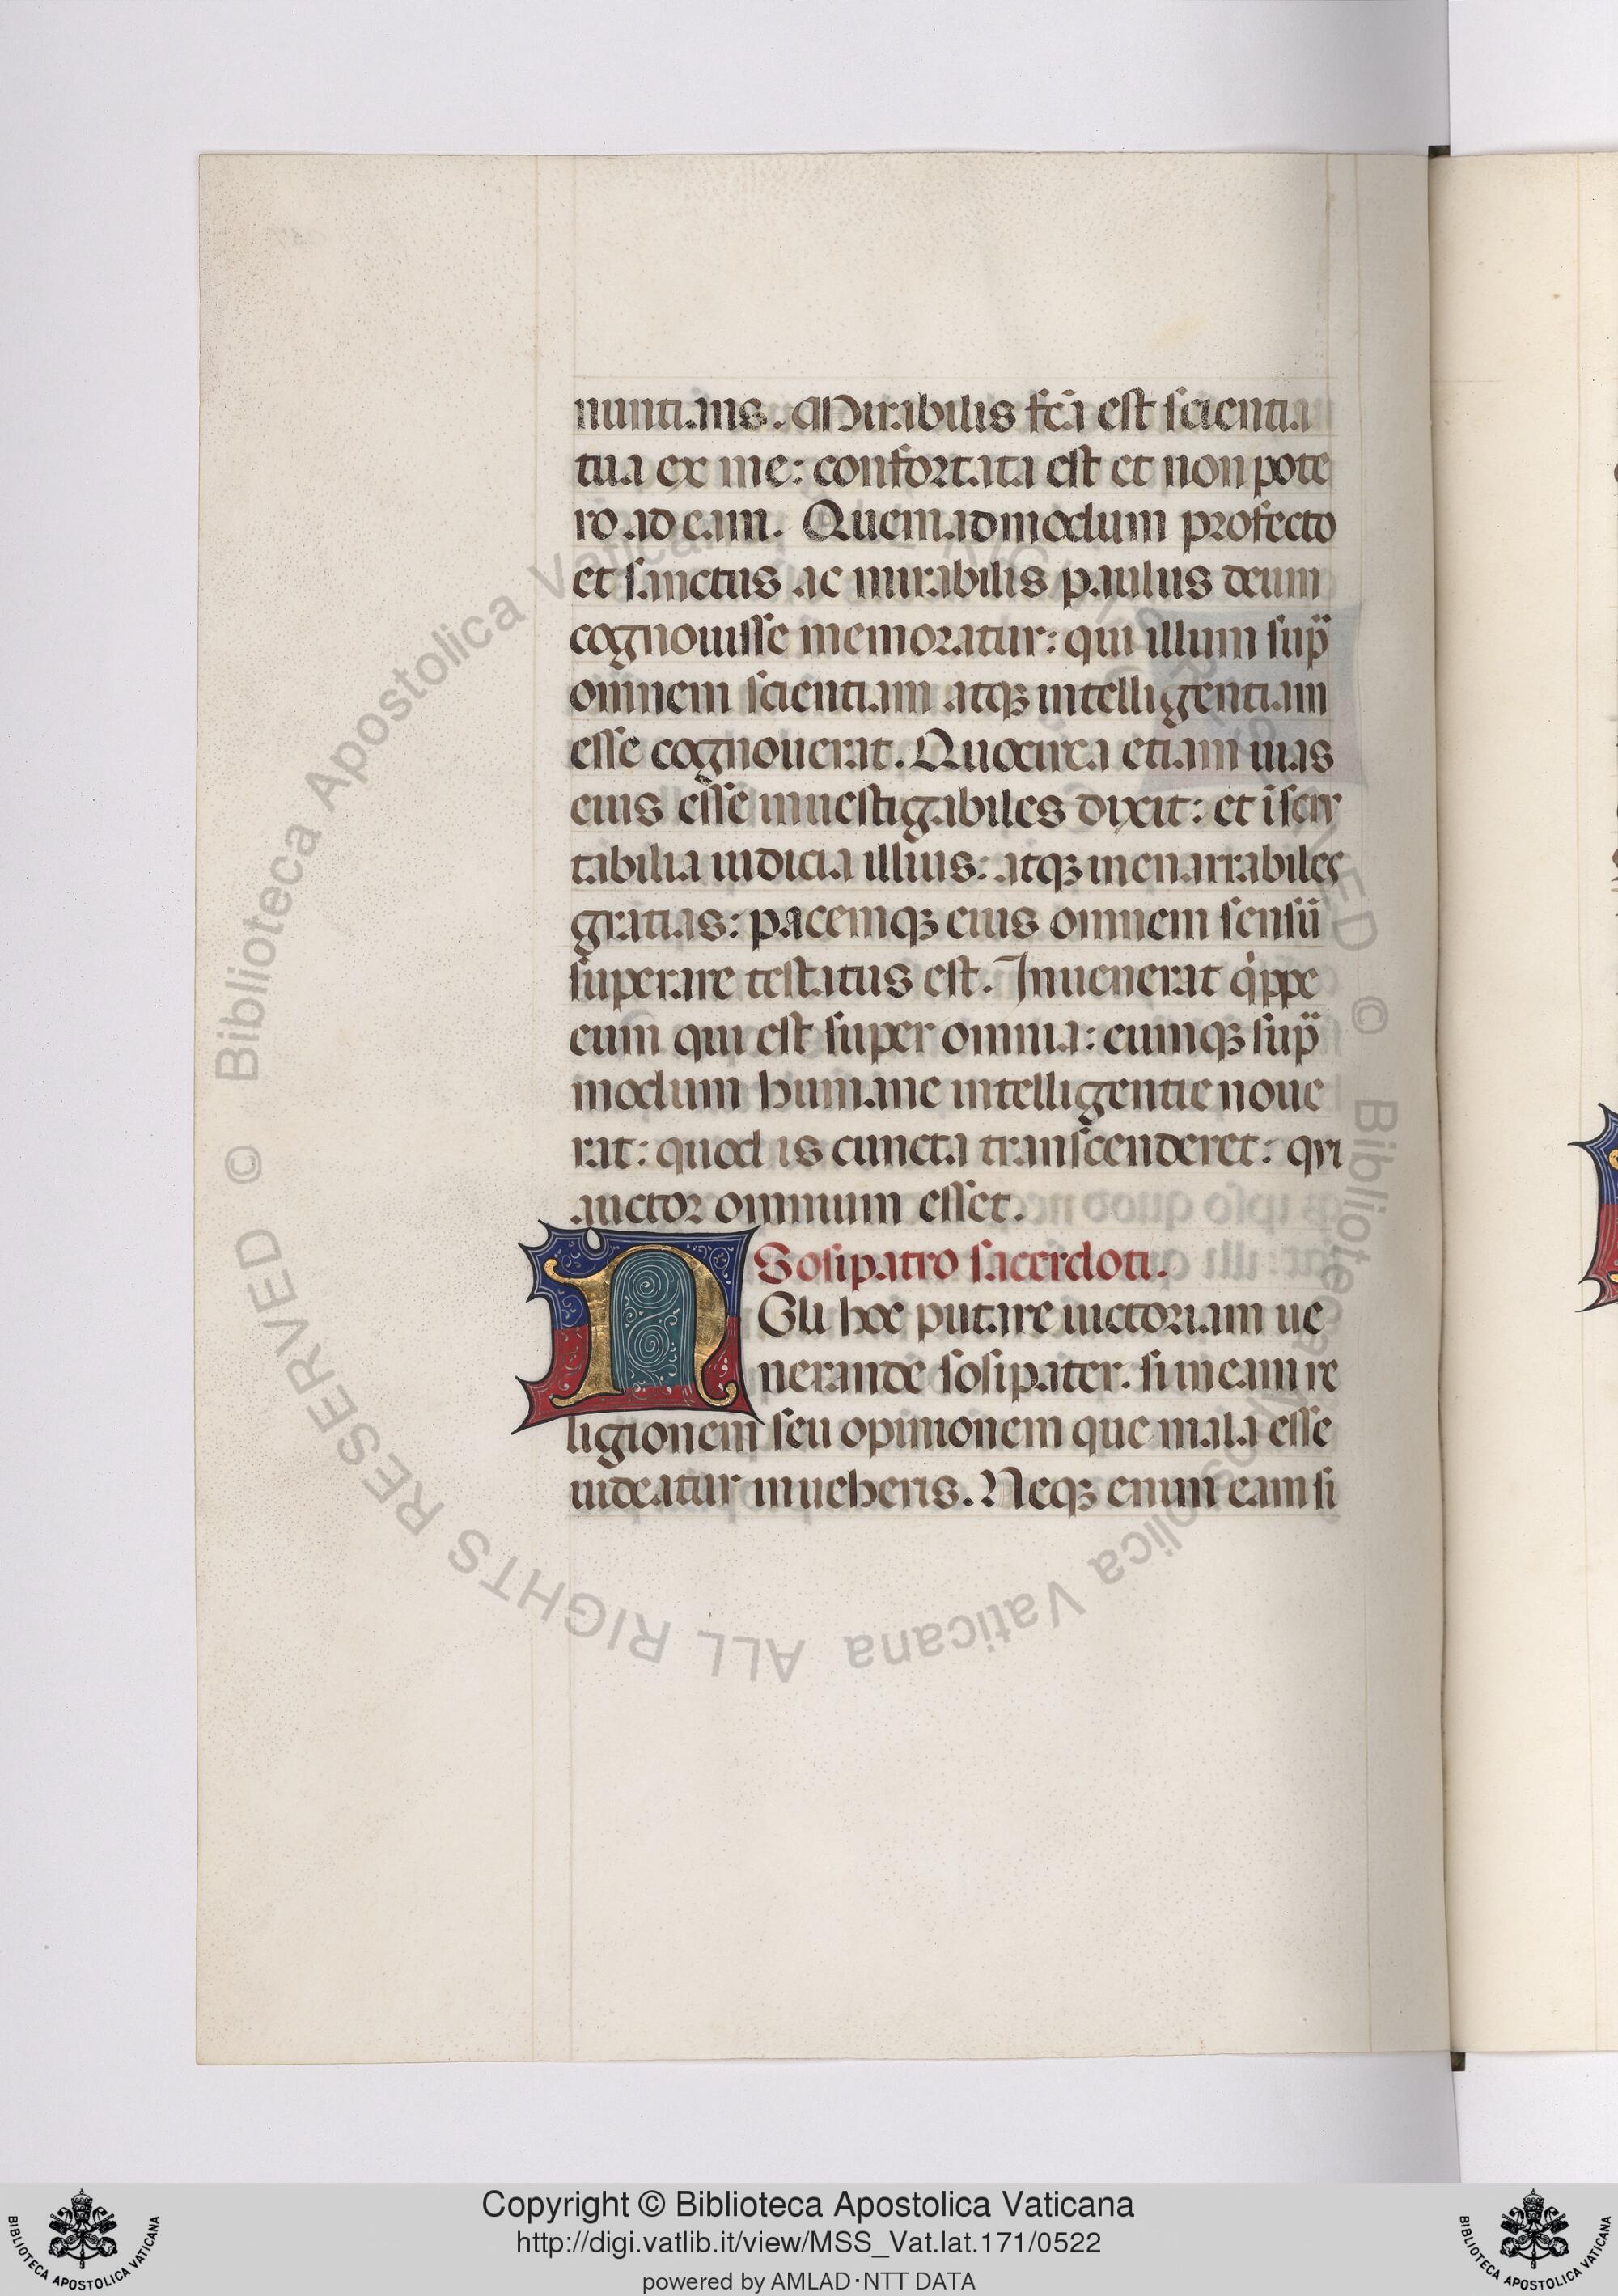 nuntians. Mirabilis fc̄a est scientia
tua ex me: confortata est et non pote
ro ad eam. Quemadmodum profecto
et sanctus ac mirabilis paulus deum
cognouisse memoratur: qui illum sup̄
omnem scientiam atqꝫ intelligentiam
esse cognouerat. Quocirca etiam uias
eius esse inuestigabiles dixit: et īscru
tabilia iudicia illius: atqꝫ inenarrabiles
gratias: pacemqꝫ eius omnem sensū
superare testatus est. Inuenerat qͥppe
eum qui est super omnia: eumqꝫ sup̄
modum humane intelligentie noue
rat: quod is cuncta transcenderet: qui
auctor omnium esset.
Sosipatro sacerdoti.
NOli hoc putare uictoriam ue
nerande sosipater. si in eam re
ligionem seu opinionem que mala esse
uideatur inueheris. Neqꝫ enim eam si
© Biblioteca Apostolica Vaticana ALL RIGHTS RESERVED
BIBLIOTECA APOSTOLICA VATICANA
Copyright © Biblioteca Apostolica Vaticana
http://digi.vatlib.it/view/MSS_Vat.lat.171/0522
powered by AMLAD·NTT DATA
BIBLIOTECA APOSTOLICA VATICANA